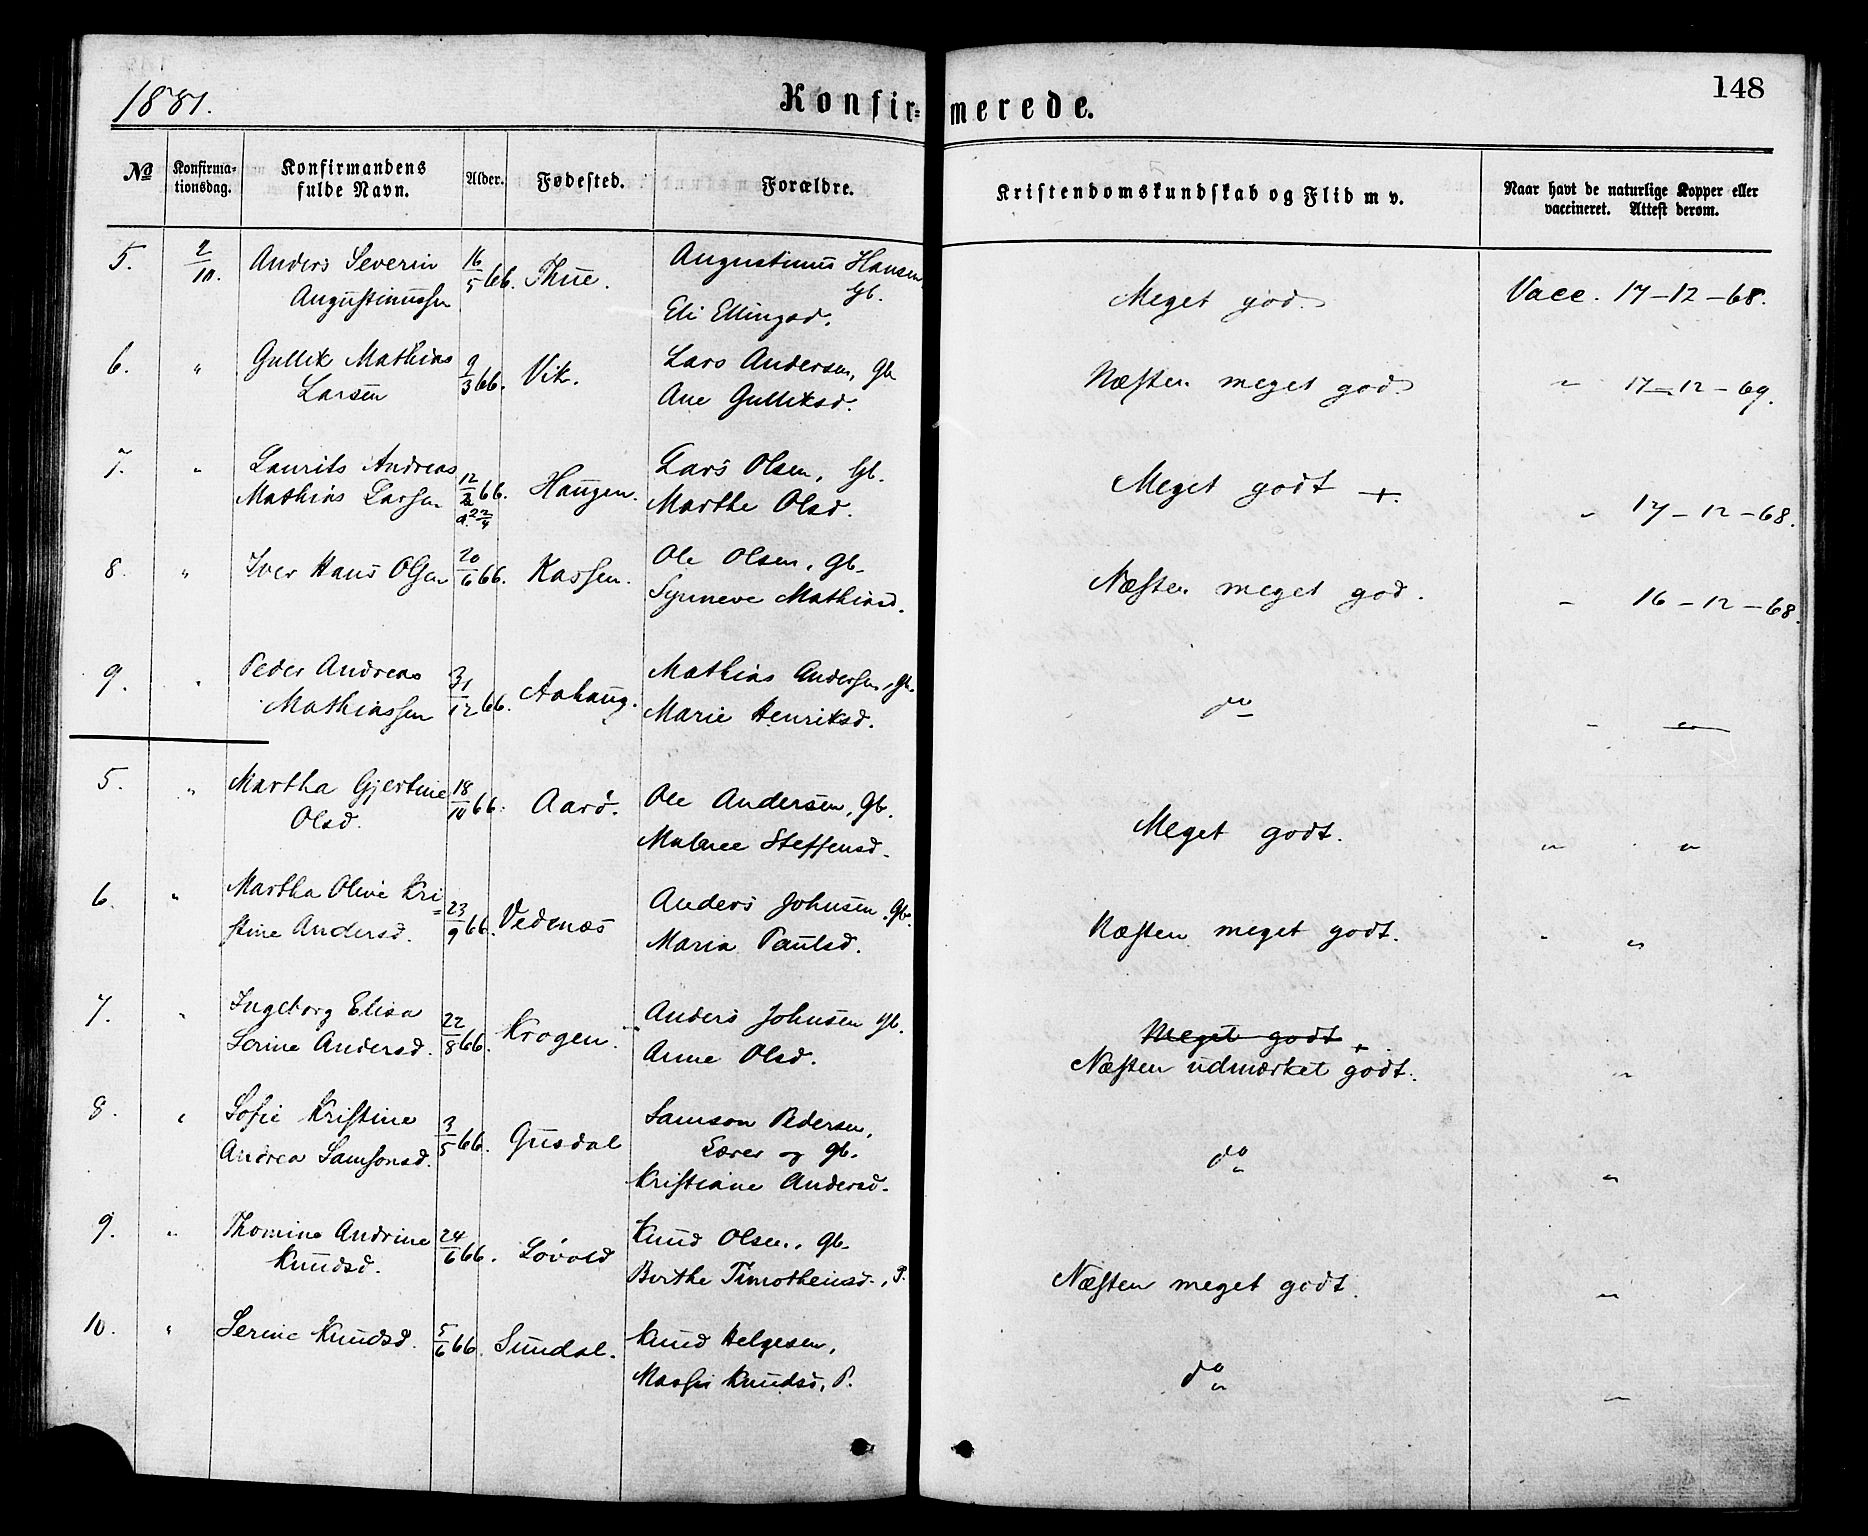 1881.
Konfirmerede.
148
№
Konfirma-
tionsdag.
Konfirmandens
fulde Navn.
Alder.
Fødested.
Forældre.
Kristendomskundskab og Flid m v.
Naar havt de naturlige Kopper eller
vaccineret. Attest derom.
5. 2/10. Anders Severin 16/5 66. Thue. Augustinus Hansen
Augustinussen Gb.
Eli Ellingsd. Meget god Vacc. 17-12-68.
6. " Gullik Mathias 9/3 66. Vik. Lars Andersen, Gb.
Larsen Ane Gulliksd. Næsten meget god. " 17-12-69.
7. " Laurits Andreas Lars Olsen, Gb.
Mathias Larsen 12/2 66. Haugen. Marthe Olsd. Meget godt +. " 17-12-68.
d. 22/4
8. " Iver Hans Olsen 20/6 66. Kassen. Ole Olsen, Gb.
Synneve Mathiasd. Næsten meget god. " 16-12-68.
9. " Peder Andreas 31/12 66. Aahaug. Mathias Andersen, Gb.
Mathiassen Marie Henriksd. do "
5. " Martha Gjertine 18/10 66. Aarö. Ole Andersen, Gb.
Olsd. Steffensd. Meget godt. " "
6. " Martha Olive Kri= 23/9 66. Vednæs Anders Johnsen, Gb.
stine Andersd. Maria Paulsd. Næsten meget godt. " "
7. " Ingeborg Elisa 22/8 66. Krogen. Anders Johnsen Gb.
Serine Andersd. Anne Olsd. Meget godt +
Næsten udmærket godt. "
8. " Sofie Kristine 3/5 66. Gusdal Samson Pedersen,
Andrea Samsonsd. Lærer og Gb.
Kristiane Andersd. do "
9. " Thomine Andrine 24/6 66. Lövold Knud Olsen, Gb.
Knudsd. Berthe Timotheusd., P. Næsten meget godt. "
10. " Serine Knudsd. 5/6 66. Sundal. Knud Helgesen,
Knudsd, P. do "